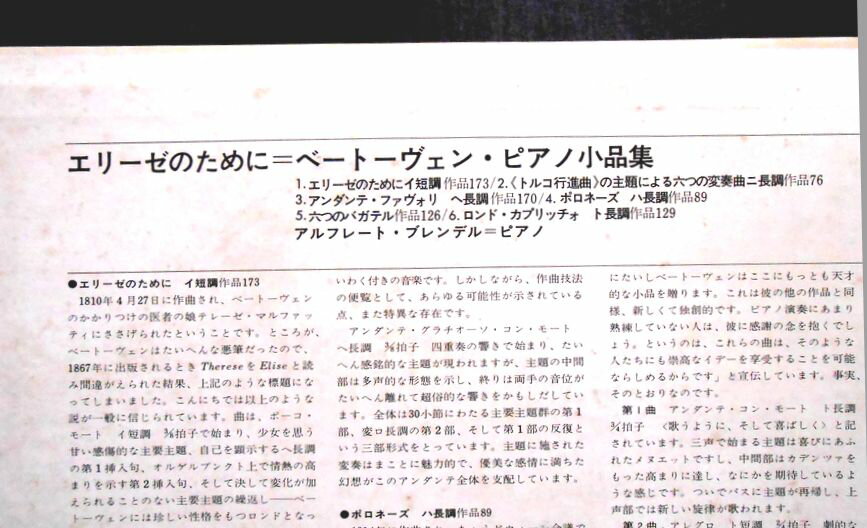 エリーゼのために＝ベートーヴェン・ピアノ小品集
1.エリーゼのためにイ短調作品173/2.《トルコ行進曲》の主題による六つの変奏曲ニ長調作品76
3.アンダンテ・ファヴォリ　ヘ長調作品170/4.ポロネーズ　ハ長調作品89
5.六つのバガテル作品126/6.ロンド・カプリッチォ　ト長調作品129
アルフレート・ブレンデル＝ピアノ
●エリーゼのために　イ短調作品173
1810年4月27日に作曲され、ベートーヴェン
のかかりつけの医者の娘テレーゼ・マルファッ
ティにささげられたということです。ところが、
ベートーヴェンはたいへんな悪筆だったので、
1867年に出版されるときThereseをEliseと読
み間違がえられた結果、上記のような標題にな
ってしまいました。こんにちでは以上のような
説が一般に信じられています。曲は、ポーコ・
モート　イ短調　3/8拍子で始まり、少女を思う
甘い感傷的な主要主題、自己を顕示するヘ長調
の第1挿入句、オルゲルプンクト上で情熱の高
まりを示す第2挿入句、そして決して変化が加
えられることのない主要主題の繰返し──ベー
トーヴェンには珍しい性格をもつロンドとなっ
いわく付きの音楽です。しかしながら、作曲技法
の便覧として、あらゆる可能性が示されている
点、また特異な存在です。
アンダンテ・グラチオーソ・コン・モート
ヘ長調　3/8拍子　四重奏の響きで始まり、たい
へん感銘的な主題が現われますが、主題の中間
部は多声的な形態を示し、終りは両手の音位が
たいへん離れて超俗的な響きをかもしだしてい
ます。全体は30小節にわたる主要主題群の第1
部、変ロ長調の第2部、そして第1部の反復と
いう三部形式をとっています。主題に施された
変奏はまことに魅力的で、優美な感情に満ちた
幻想がこのアンダンテ全体を支配しています。
●ポロネーズ　ハ長調作品89
にたいしベートーヴェンはここにもっとも天才
的な小品を贈ります。これは彼の他の作品と同
様、新しくて独創的です。ピアノ演奏にあまり
熟練していない人は、彼に感謝の念を抱くでし
ょう。というのは、これらの曲は、そのような
人たちにも崇高なイデーを享受することを可能
ならしめるからです」と宣伝しています。事実、
そのとおりなのです。
第1曲　アンダンテ・コン・モート　ト長調
3/4拍子　〈歌うように、そして喜ばしく〉と記
されています。三声で始まる主題は喜びにあふ
れたメヌエットですし、中間部はカデンツァを
もった高まりに達し、なにかを期待しているよ
うな感じです。ついでバスに主題が再帰し、上
声部では新しい旋律が歌われます。